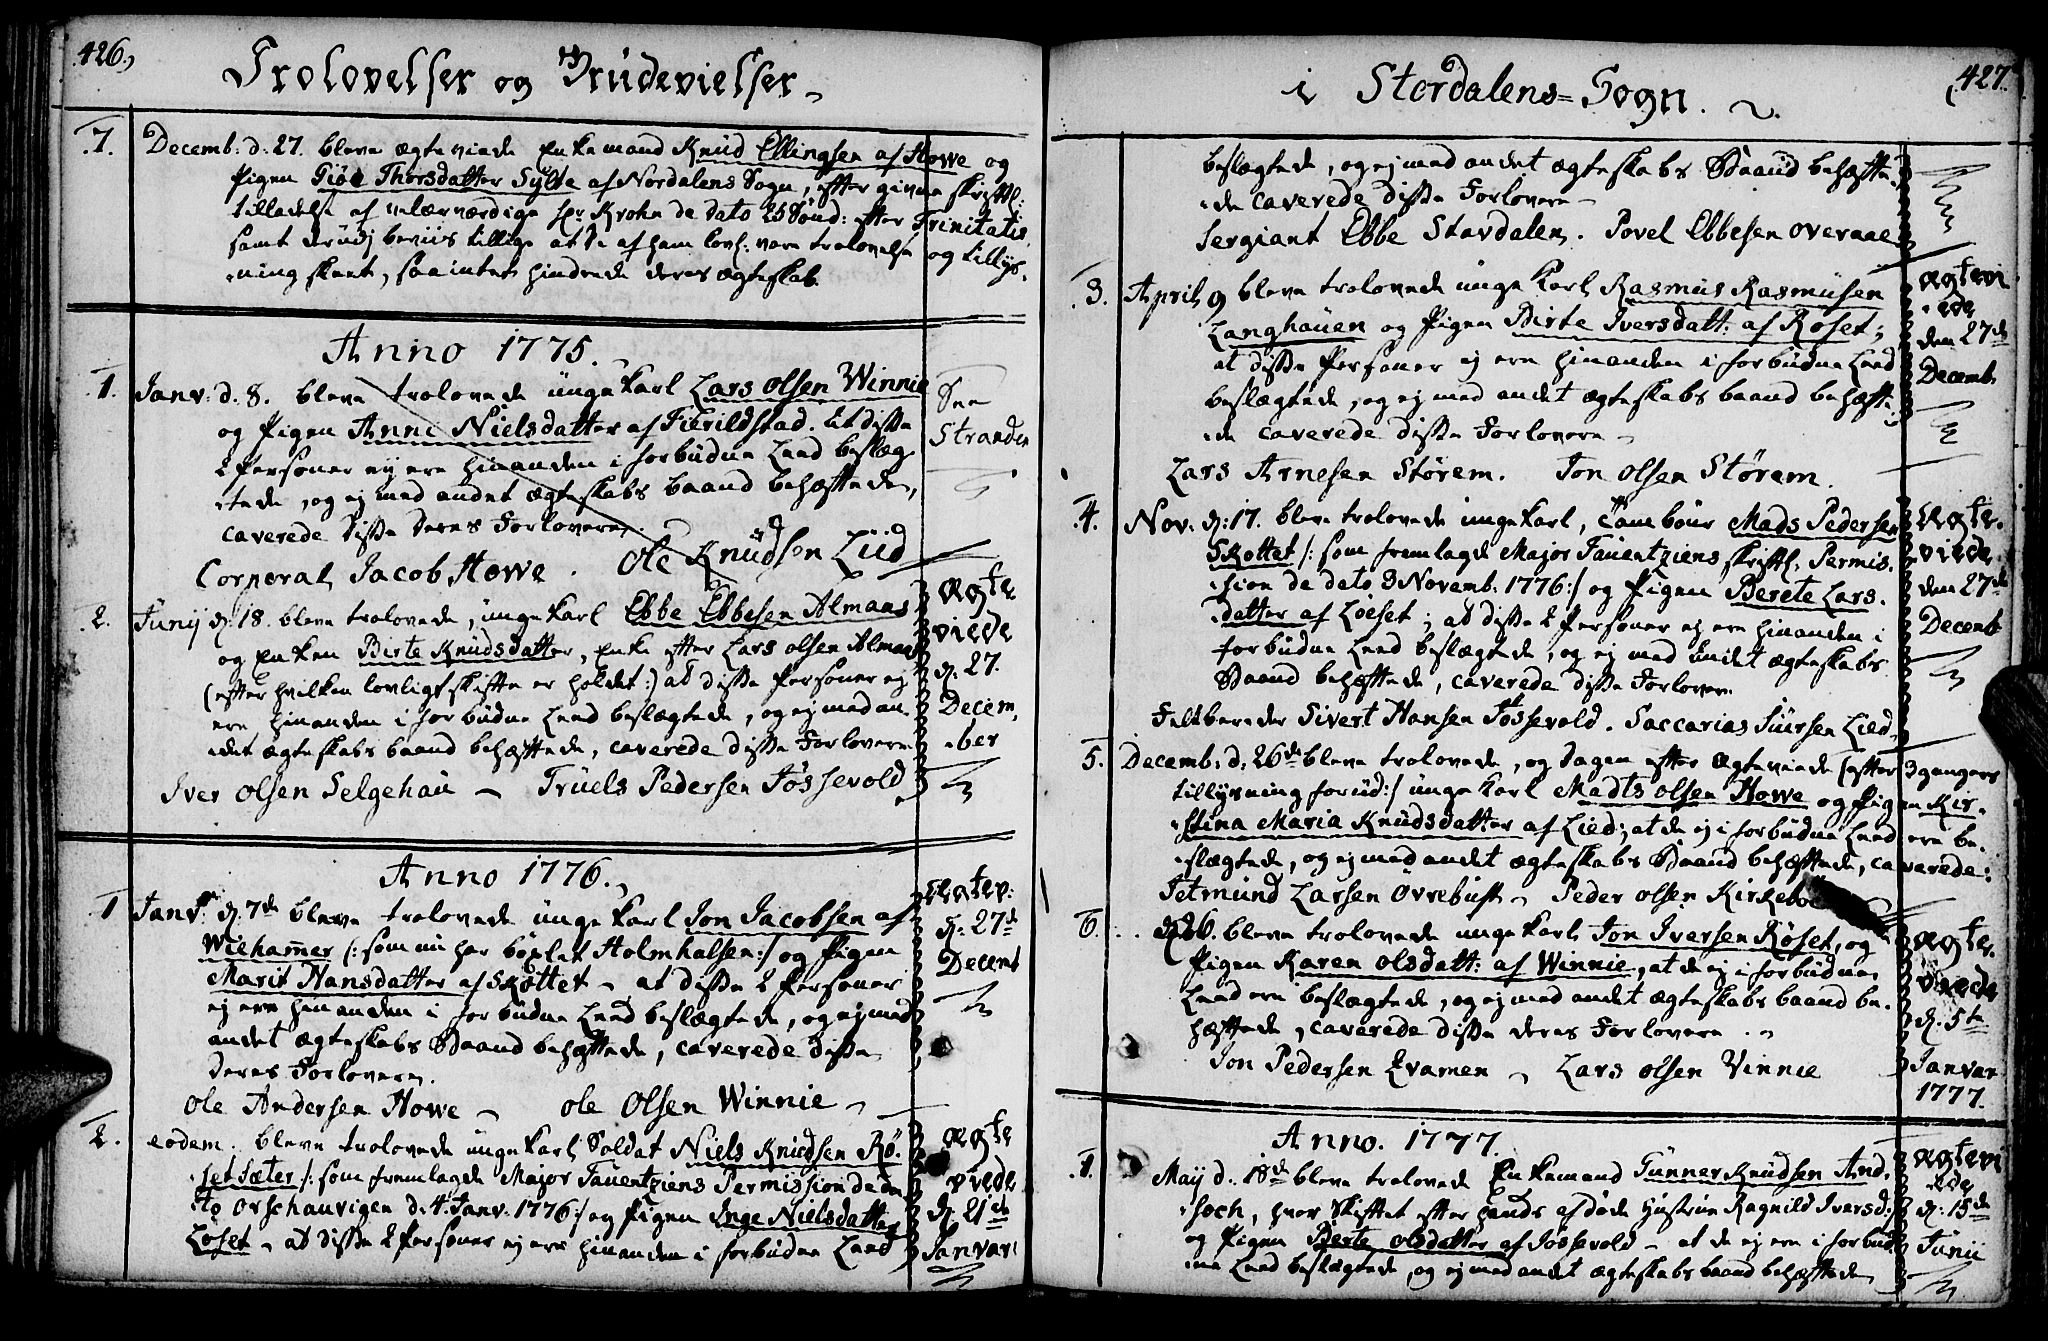 426.
Trolovelser og Brudevielser
7. Decemb: d. 27. bleve ægteviede Enkemand Knud Ellingsen af Howe og
Pigen Tiød Thorsdatter Sylte af Nordalens Sogn, efter givne skriftl:
tilladelse af velærværdige hr Krohn de dato 25 Sønd: efter Trinitatis,
samt beviis tillige at de af ham lovl. vare trolovelse og tillys-
ning skeet, saa intet hindrede deres ægteskab.
Anno 1775.
1. Janv: d. 8. bleve trolovede unge karl Lars Olsen Winnie
og Pigen Anne Nielsdatter af Fierildstad. At disse
2 Personer ey ere hinanden i forbudne Leed beslæg-
tede, og ej med andet ægteskabs baand behæftede,
caverede disse deres Forlovere.
Corporal Jacob Howe. Ole Knudsen Lied
See
Stranden
2. Junij d. 18. bleve trolovede, unge karl Ebbe Ebbesen Almaas
og Enken Birte Knudsdatter, Enke efter Lars Olsen Almaas
(efter hvilken lovligt skifte er holdet:) at disse Personer ej
ere hinanden i forbudne Leed beslægtede, og ej med an-
det ægteskabs baand behæftede, caverede disse Forlovere
Iver Olsen Selgehau - Truels Pedersen Fossevold
ægte
viede
d. 27.
Decem,
ber
Anno 1776.
1 Janv: d. 7de bleve trolovede unge karl Jon Jacobsen af
Wiehammer (: som nu har böxlet Holmhalsen :) og Pigen
Marit Hansdatter af Skottet - at disse 2 Personer
ej ere hinanden i forbudne Leed beslægtede, og ej med
andet ægteskabs Baand behæftede, caverede disse
deres Forlovere.
Ole Andersen Howe - Ole Olsen Winnie -
Ægtev:
d. 27de
Decemb
2. eodem. bleve trolovede unge karl Soldat Niels Knudsen Rø-
set Sæter (: som fremlagde Major Tauentziens Permission de da-
to Orschaurigen d. 4 Janv. 1776 :) og Pigen Inge Nielsdatter
Løset - at disse 2 Personer ej ere hinanden i forbudne Leed
ægte
viede
d. 21de
Januari
i Stordalens Sogn.
427.
beslægtede, og ej med andet ægteskabs Baand behæfte-
de caverede disse Forlovere -
Sergiant Ebbe Stavdalen. Povel Ebbesen Overaae
3. April 9 bleve trolovede unge karl Rasmus Rasmusen
Langhauen og Pigen Birte Iversdatt: af Roset;
at disse Personer ej ere hinanden i forbudne Leed
beslægtede, og ej med andet ægteskabs baand behæfte-
de caverede disse Forlovere -
Lars Arnesen Størem. Jon Olsen Størem.
ægtevi
ede
den 27de
Decemb.
4. Nov. d: 17. bleve trolovede unge karl, Tambour Mads Pedersen
Skottet (: som fremlagde Major Tauentziens skriftl. Permis-
sion de dato 3 Novemb. 1776 :) og Pigen Berete Lars-
datter af Løset; at disse 2 Personer ej ere hinanden i
forbudne Leed beslægtede, og ej med andet ægteskabs
Baand behæftede, caverede disse Forlovere
Feldbereder Sivert Hansen Fossevold. Saccarias Siursen Lied
Ægte-
viede
den 27de
Decemb
5. Decemb. d: 26de bleve trolovede, og dagen efter ægteviede (efter 3 gangers
tillysning forud:) unge karl Madts Olsen Howe og Pigen Kir-
stina Maria Knudsdatter af Lied; at de ej i forbudne Leed ere be-
slægtede, og ej med andet ægteskabs Baand behæftede, caverede:
Jetmund Larsen Ovrebust - Peder Olsen
6. d. 26. bleve trolovede unge karl Jon Iversen Røset, og
Pigen Karen Olsdatt: af Winnie, at de ej i forbudne
Leed ere beslægtede, og ej med andet ægteskabs baand be-
hæftede, caverede disse deres Forlovere.
Jon Pedersen Qvamen - Lars Olsen Vinnie
ægte-
viede
d. 5te
Janvar
1777.
Anno. 1777.
1. Maij d. 18de bleve trolovede Enkemand Gunner Knudsen And-
hoch, hvor Skiftet efter hands afdøde Hustrue Ragnild Iversd:
og Pigen Berte Olsdatter af Fossevold - at de ej ere i forbud-
ne Leed beslægtede, og ej med andet ægteskabs baand behæftede
ægtevi
ede
d: 15de
Junii